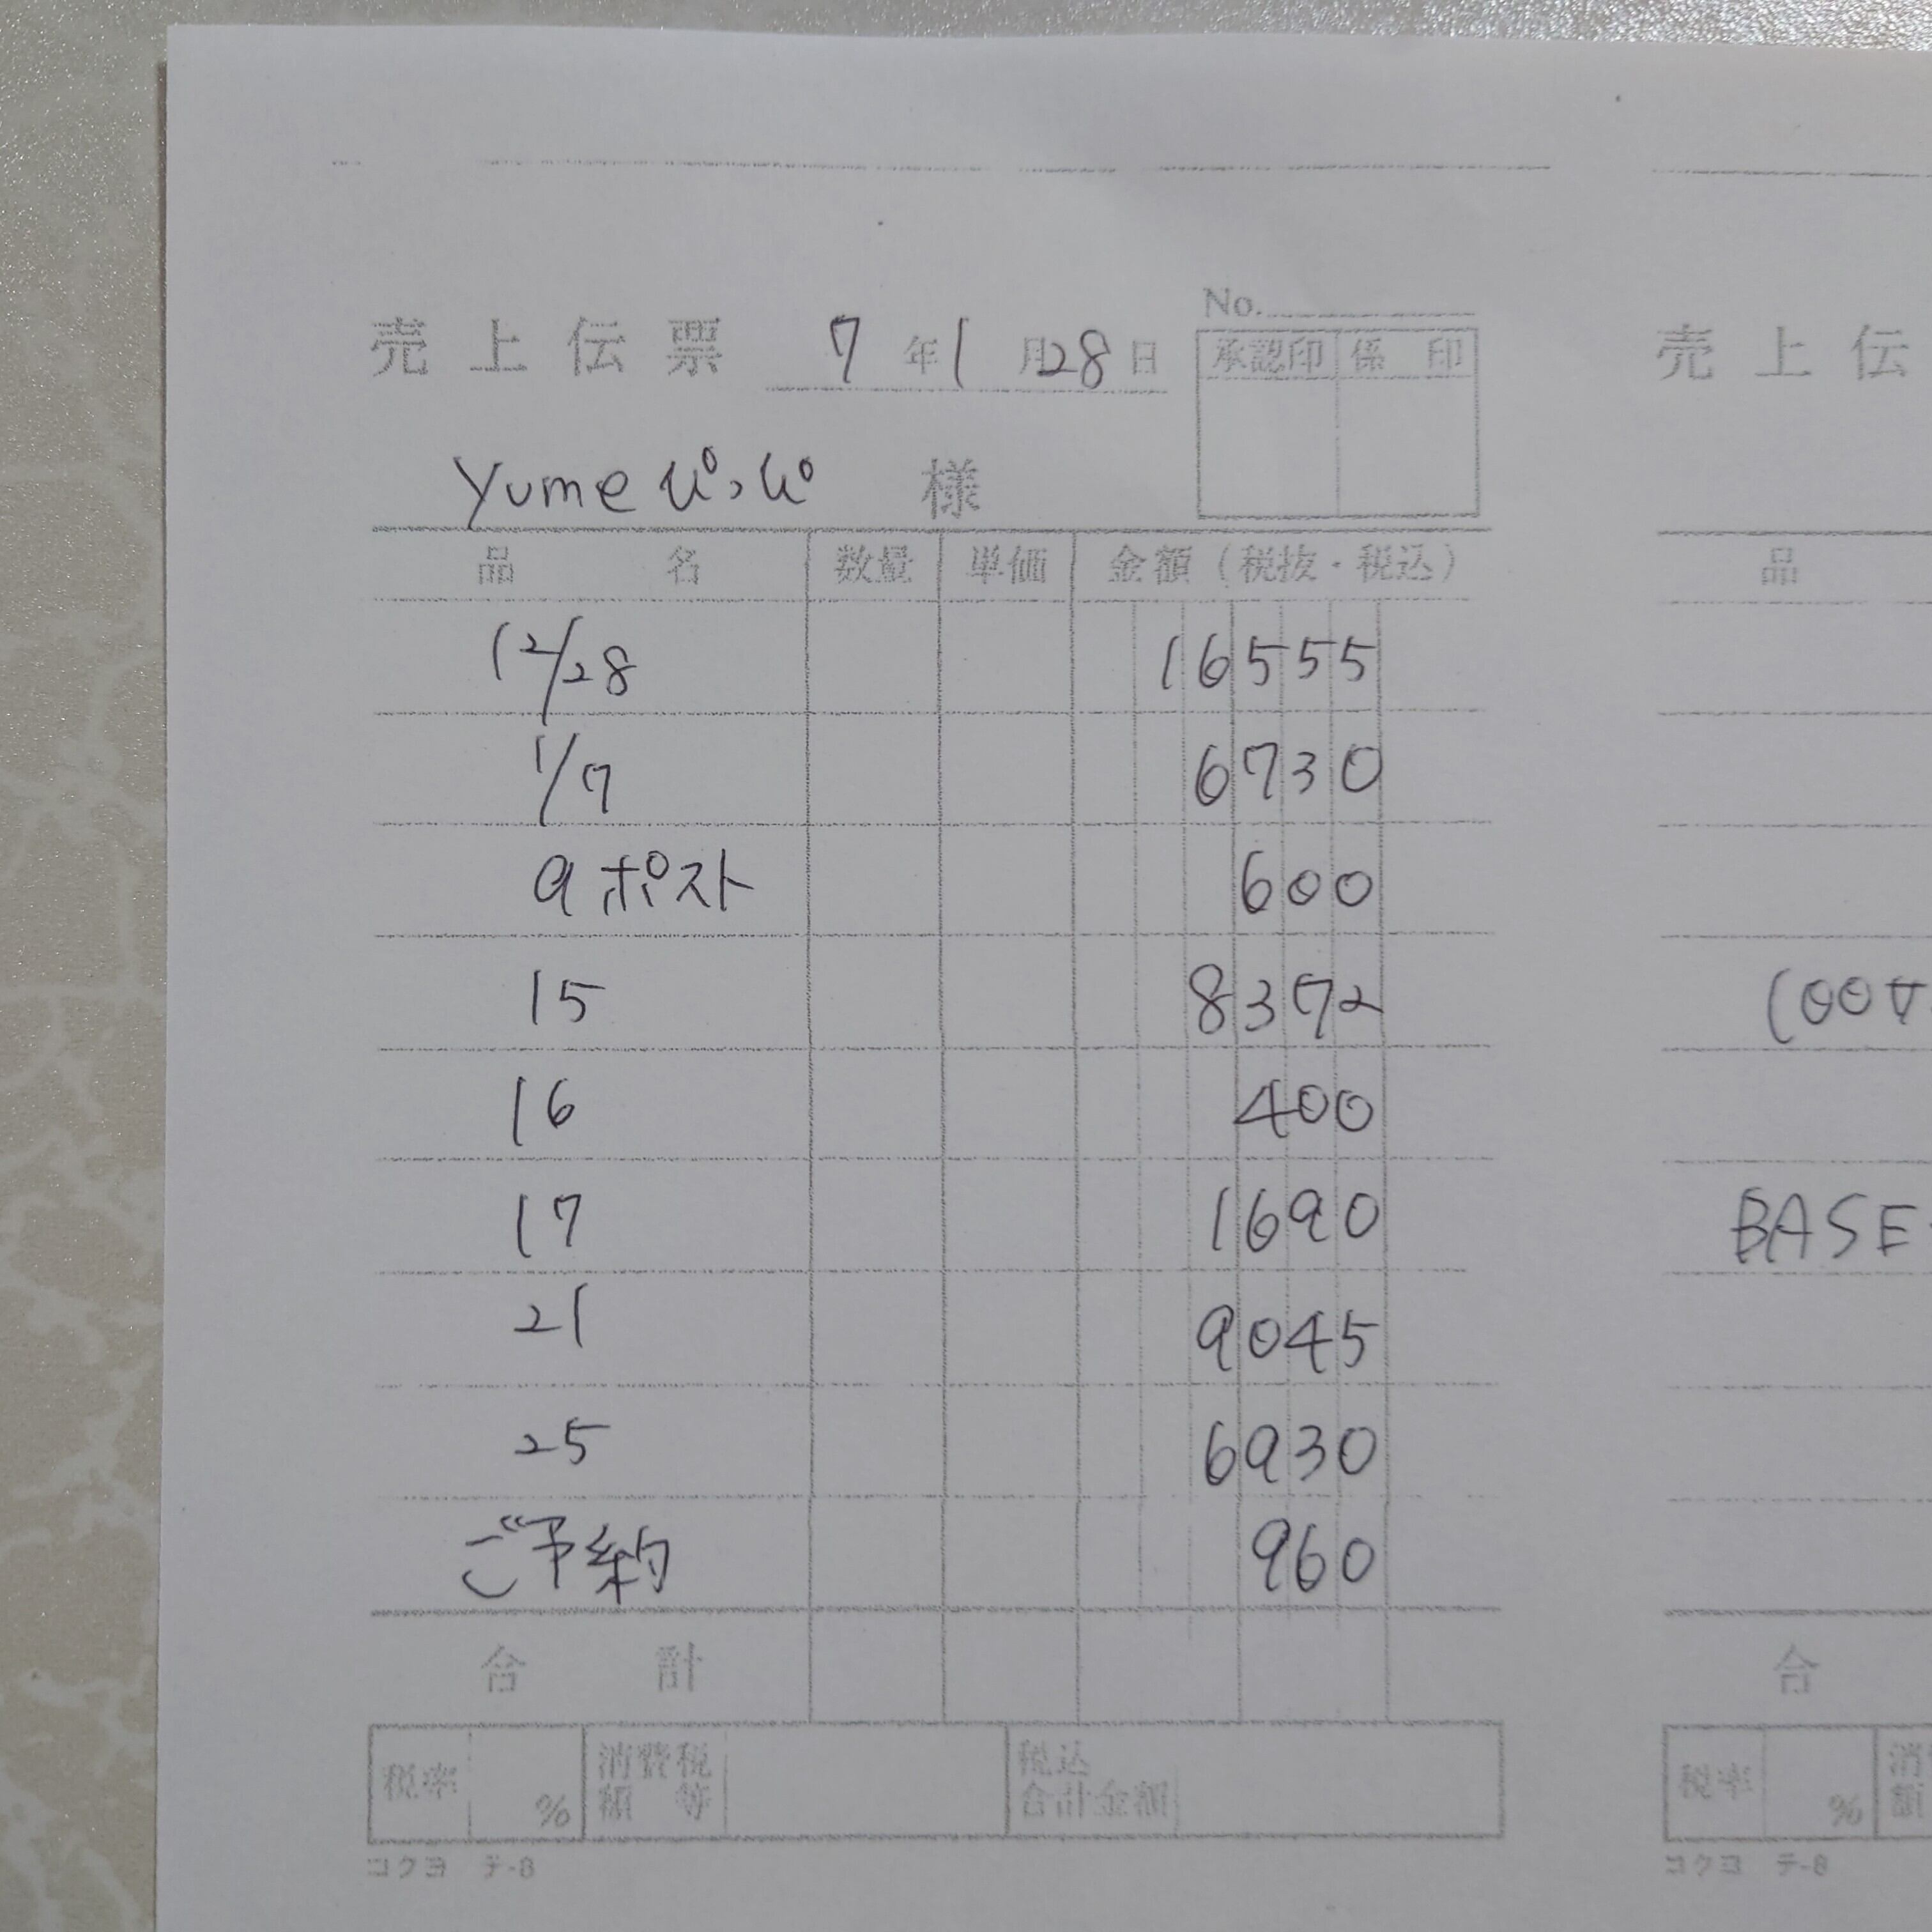 売上伝票 7年1月28日
No.
承認印 係印
yumeぴっぴ 様
品名 数量 単価 金額（税抜・税込）
12/28 16555
1/7 6730
9ポスト 600
15 8372
16 400
17 1690
21 9045
25 6930
ご予約 960
合計
税率 % 消費税額等 税込合計金額
コクヨ テ-8
売上伝
品
BASE
合
税率 % 消
額
コクヨ テ-8